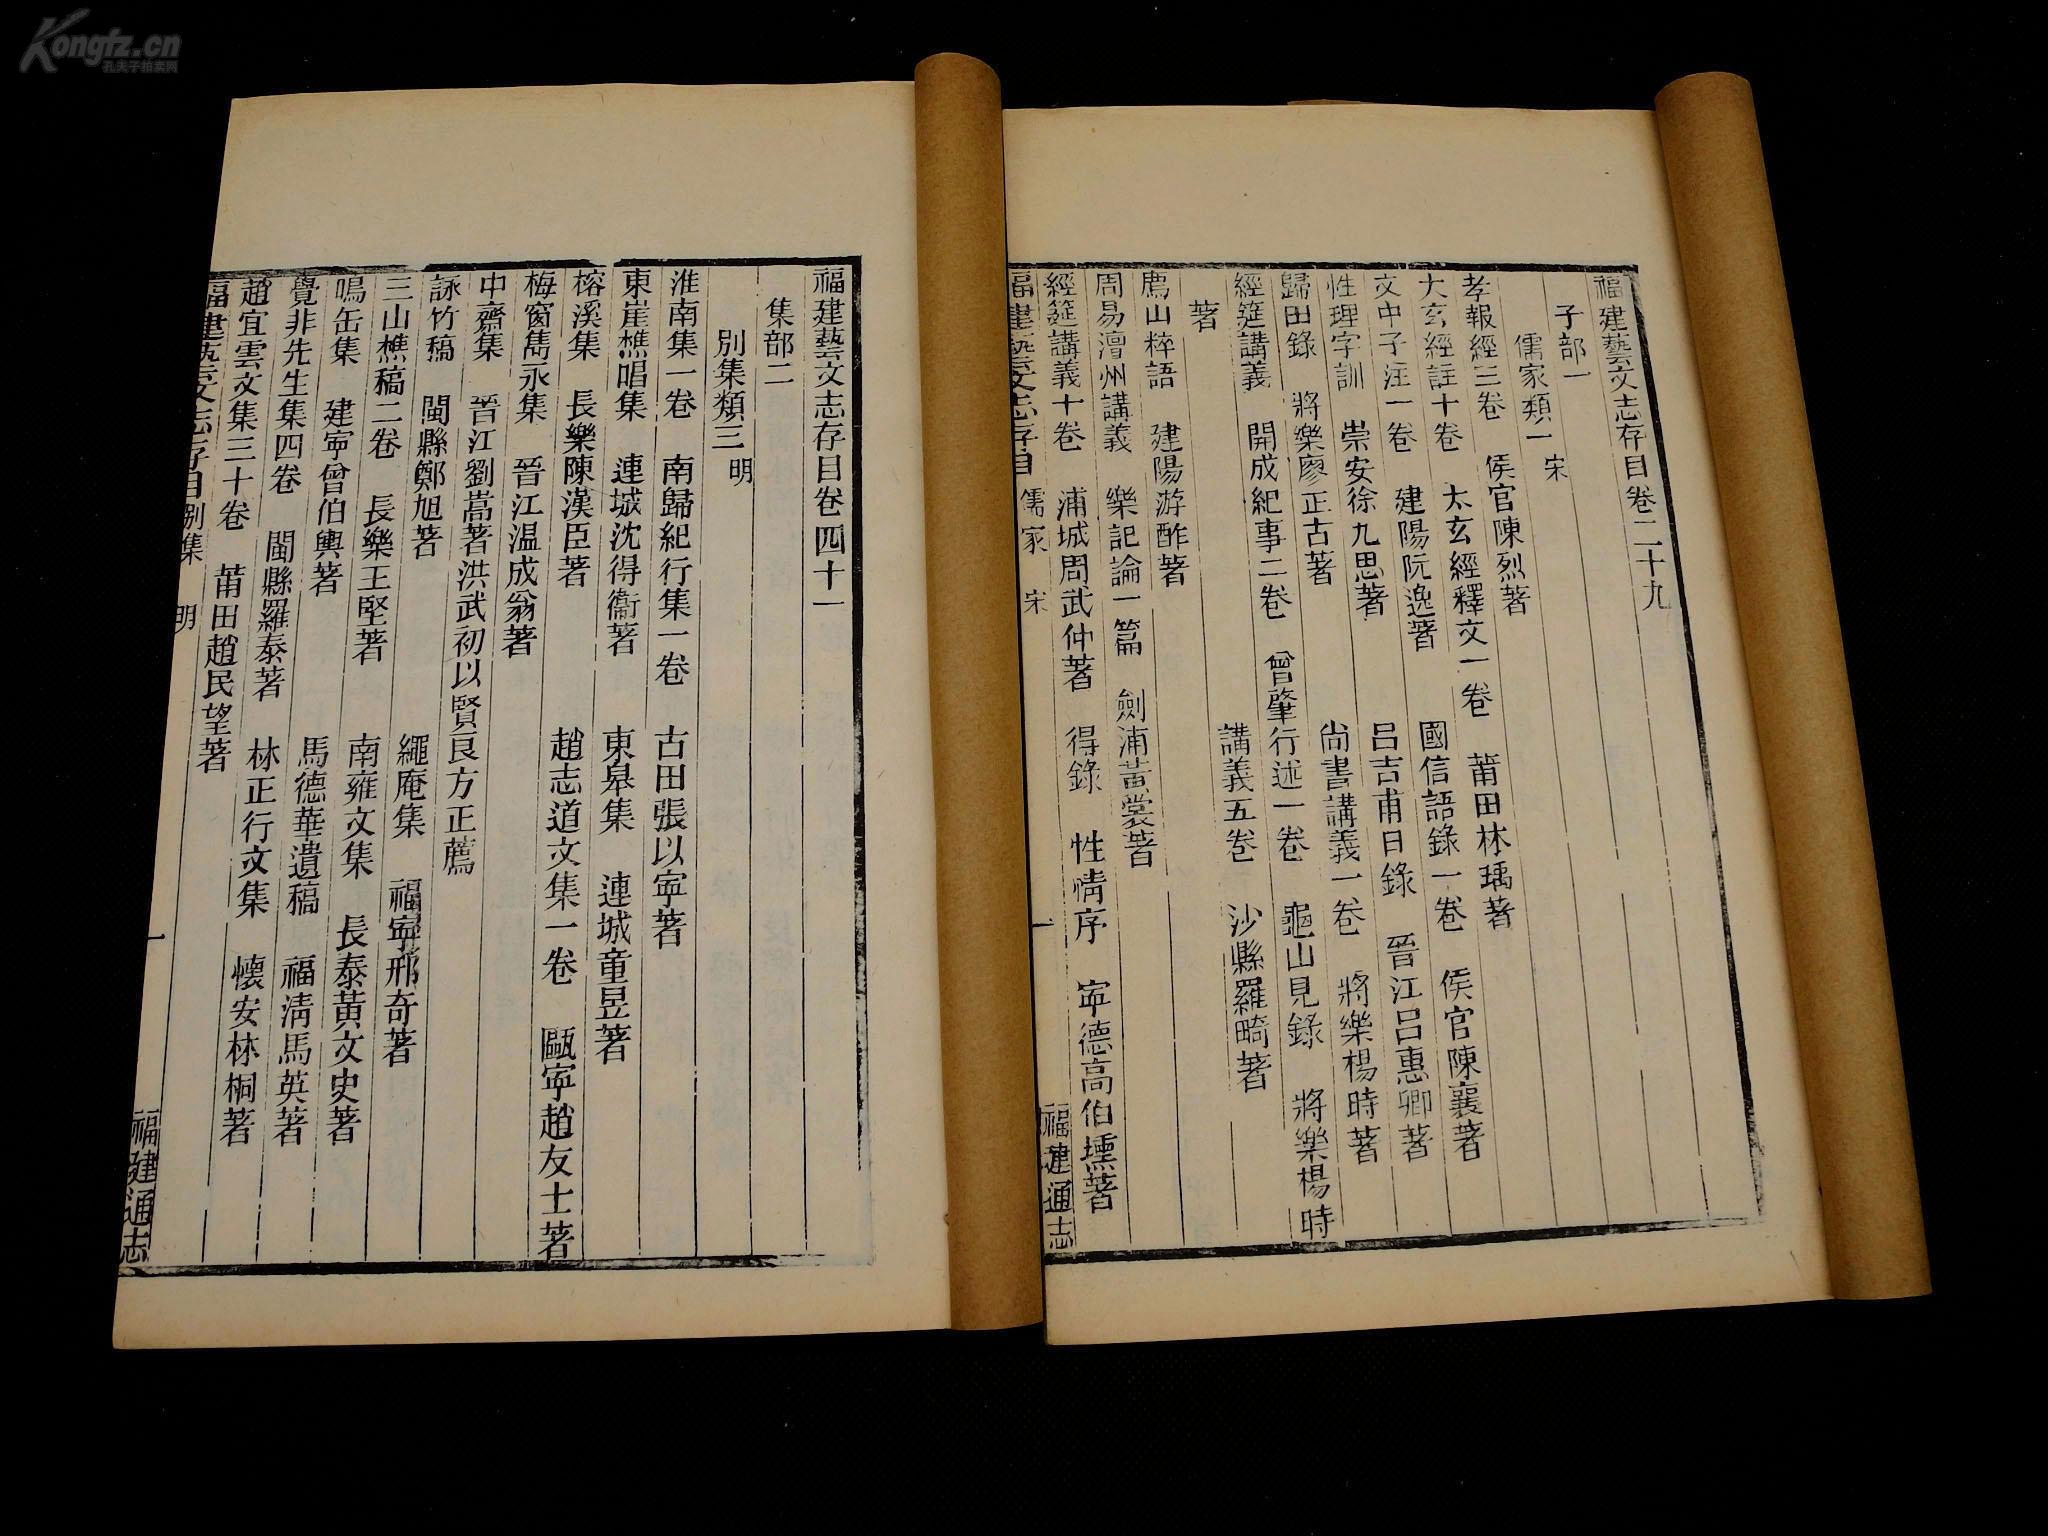 Kongfz.cn
孔夫子拍卖网
福建藝文志存目卷二十九
子部一
儒家類一 宋
孝報經三卷 侯官陳烈著 莆田林瑀著
大玄經註十卷 太玄經釋文一卷 侯官陳襄著
文中子注一卷 建陽阮逸著 國信語錄一卷
性理字訓 崇安徐九思著 呂吉甫日錄 晉江呂惠卿著
歸田錄 將樂廖正古著 尚書講義一卷 將樂楊時著
經筵講義 開成紀事二卷 曾肇行述一卷 龜山見錄 將樂楊時
著 講義五卷 沙縣羅畸著
廌山粹語 建陽游酢著
周易澶州講義 樂記論一篇 劍浦黃裳著
經筵講義十卷 浦城周武仲著 得錄 性情序 寧德高伯壎著
福建藝文志存目 儒家 宋 一 福建通志
福建藝文志存目卷四十一
集部二
別集類三 明
淮南集一卷 南歸紀行集一卷 古田張以寧著
東崖樵唱集 連城沈得衞著 東皋集 連城童昱著
榕溪集 長樂陳漢臣著 趙志道文集一卷 甌寧趙友士著
梅窗雋永集 晉江温成翁著
中齋集 晉江劉嵩著洪武初以賢良方正薦
詠竹稿 閩縣鄭旭著
三山樵稿二卷 長樂王堅著 繩庵集 福寧邢奇著
鳴缶集 建寧曾伯輿著 南雍文集 長泰黃文史著
覺非先生集四卷 閩縣羅泰著 馬德華遺稿 福淸馬英著
趙宜雲文集三十卷 莆田趙民望著 林正行文集 懷安林桐著
福建藝文志存目 別集 明 一 福建通志